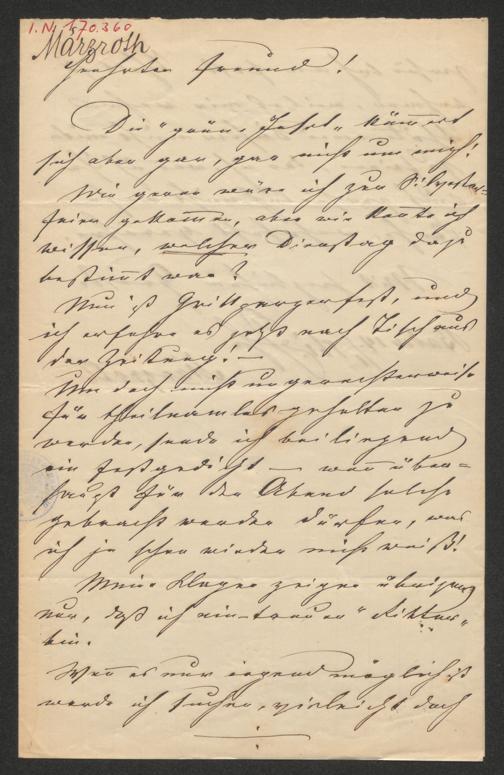 I.N. 170.360
Märzroth
Geehrter Freund!
Die "grüne Insel" kümert
sich aber gar, gar nicht um mich!
Wie gerne wäre ich zur Silvester-
feier gekommen, aber wie konte ich
wissen, welcher Dienstag dazu
bestimt war?
Nun ist Grillparzerfest, und
ich erfahre es jetzt nach Tisch aus
der Zeitung. —
Um doch nicht ungerechterweise
für theilnamslos gehalten zu
werden, sende ich beiliegend
ein Festgedicht — wen über=
haupt für den Abend solche
gebracht werden dürfen, was
ich ja schon wieder nicht weiß!
Meine Klagen zeigen übrigens
nur, daß ich ein treuer "Ritter"
bin.
Wen es nur irgend möglich ist
werde ich suchen, vieleicht doch